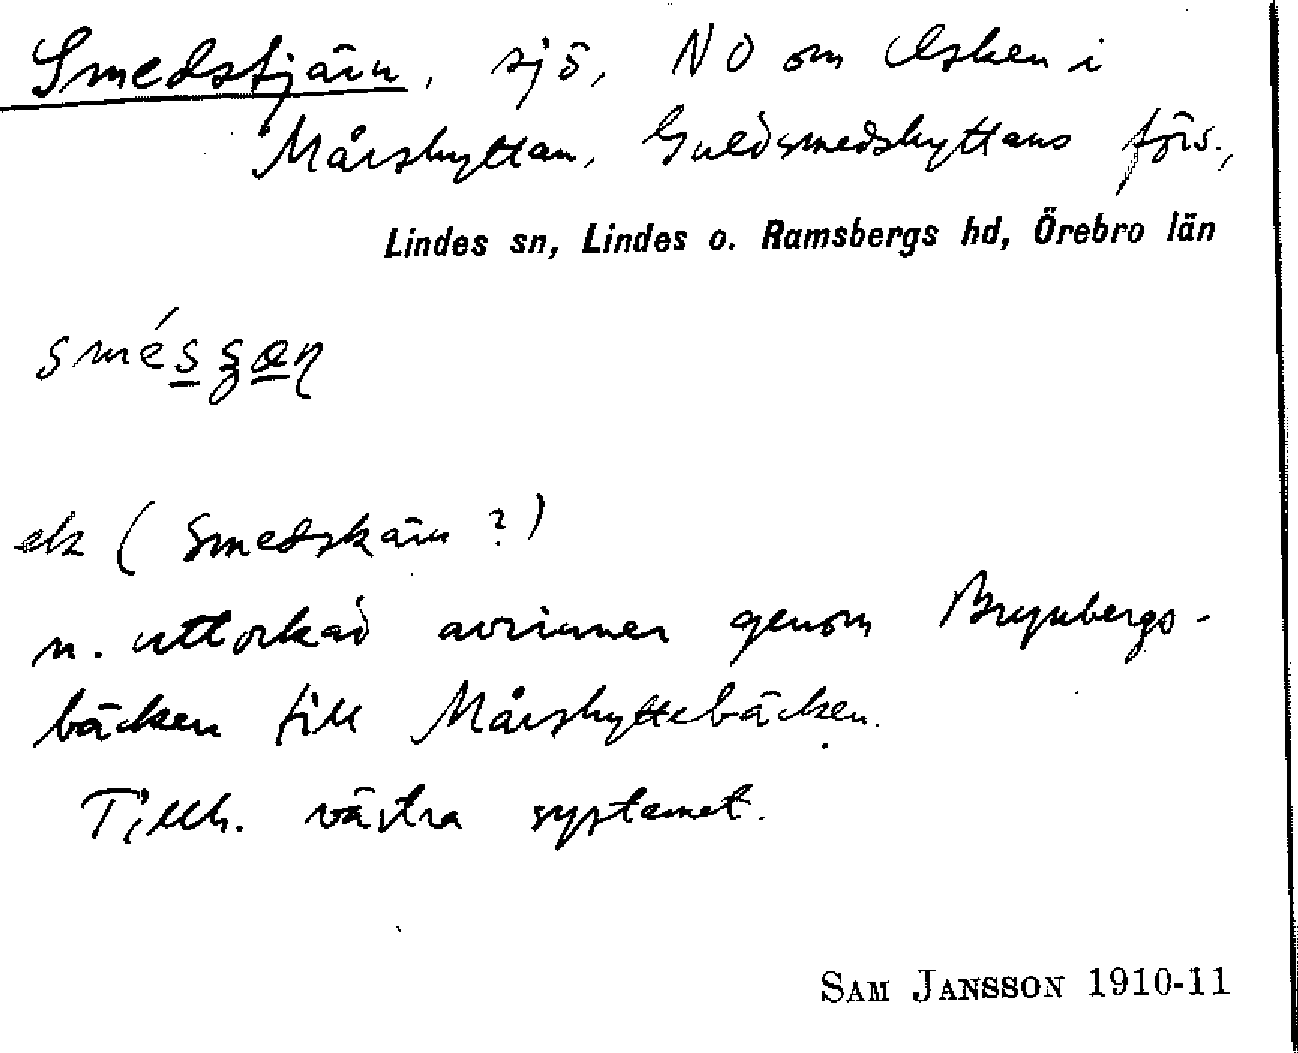 Smedstjärn, sjö, NO om Usken i
Mårshyttan, Guldsmedshyttans förs.,
Lindes sn, Lindes o. Ramsbergs hd, Örebro län
ek (Smedskärn?)
n. uttorkad avrinner genom Brynbergs-
bäcken till Mårshyttebäcken.
Tillh. västra systemet.
SAM JANSSON 1910-11